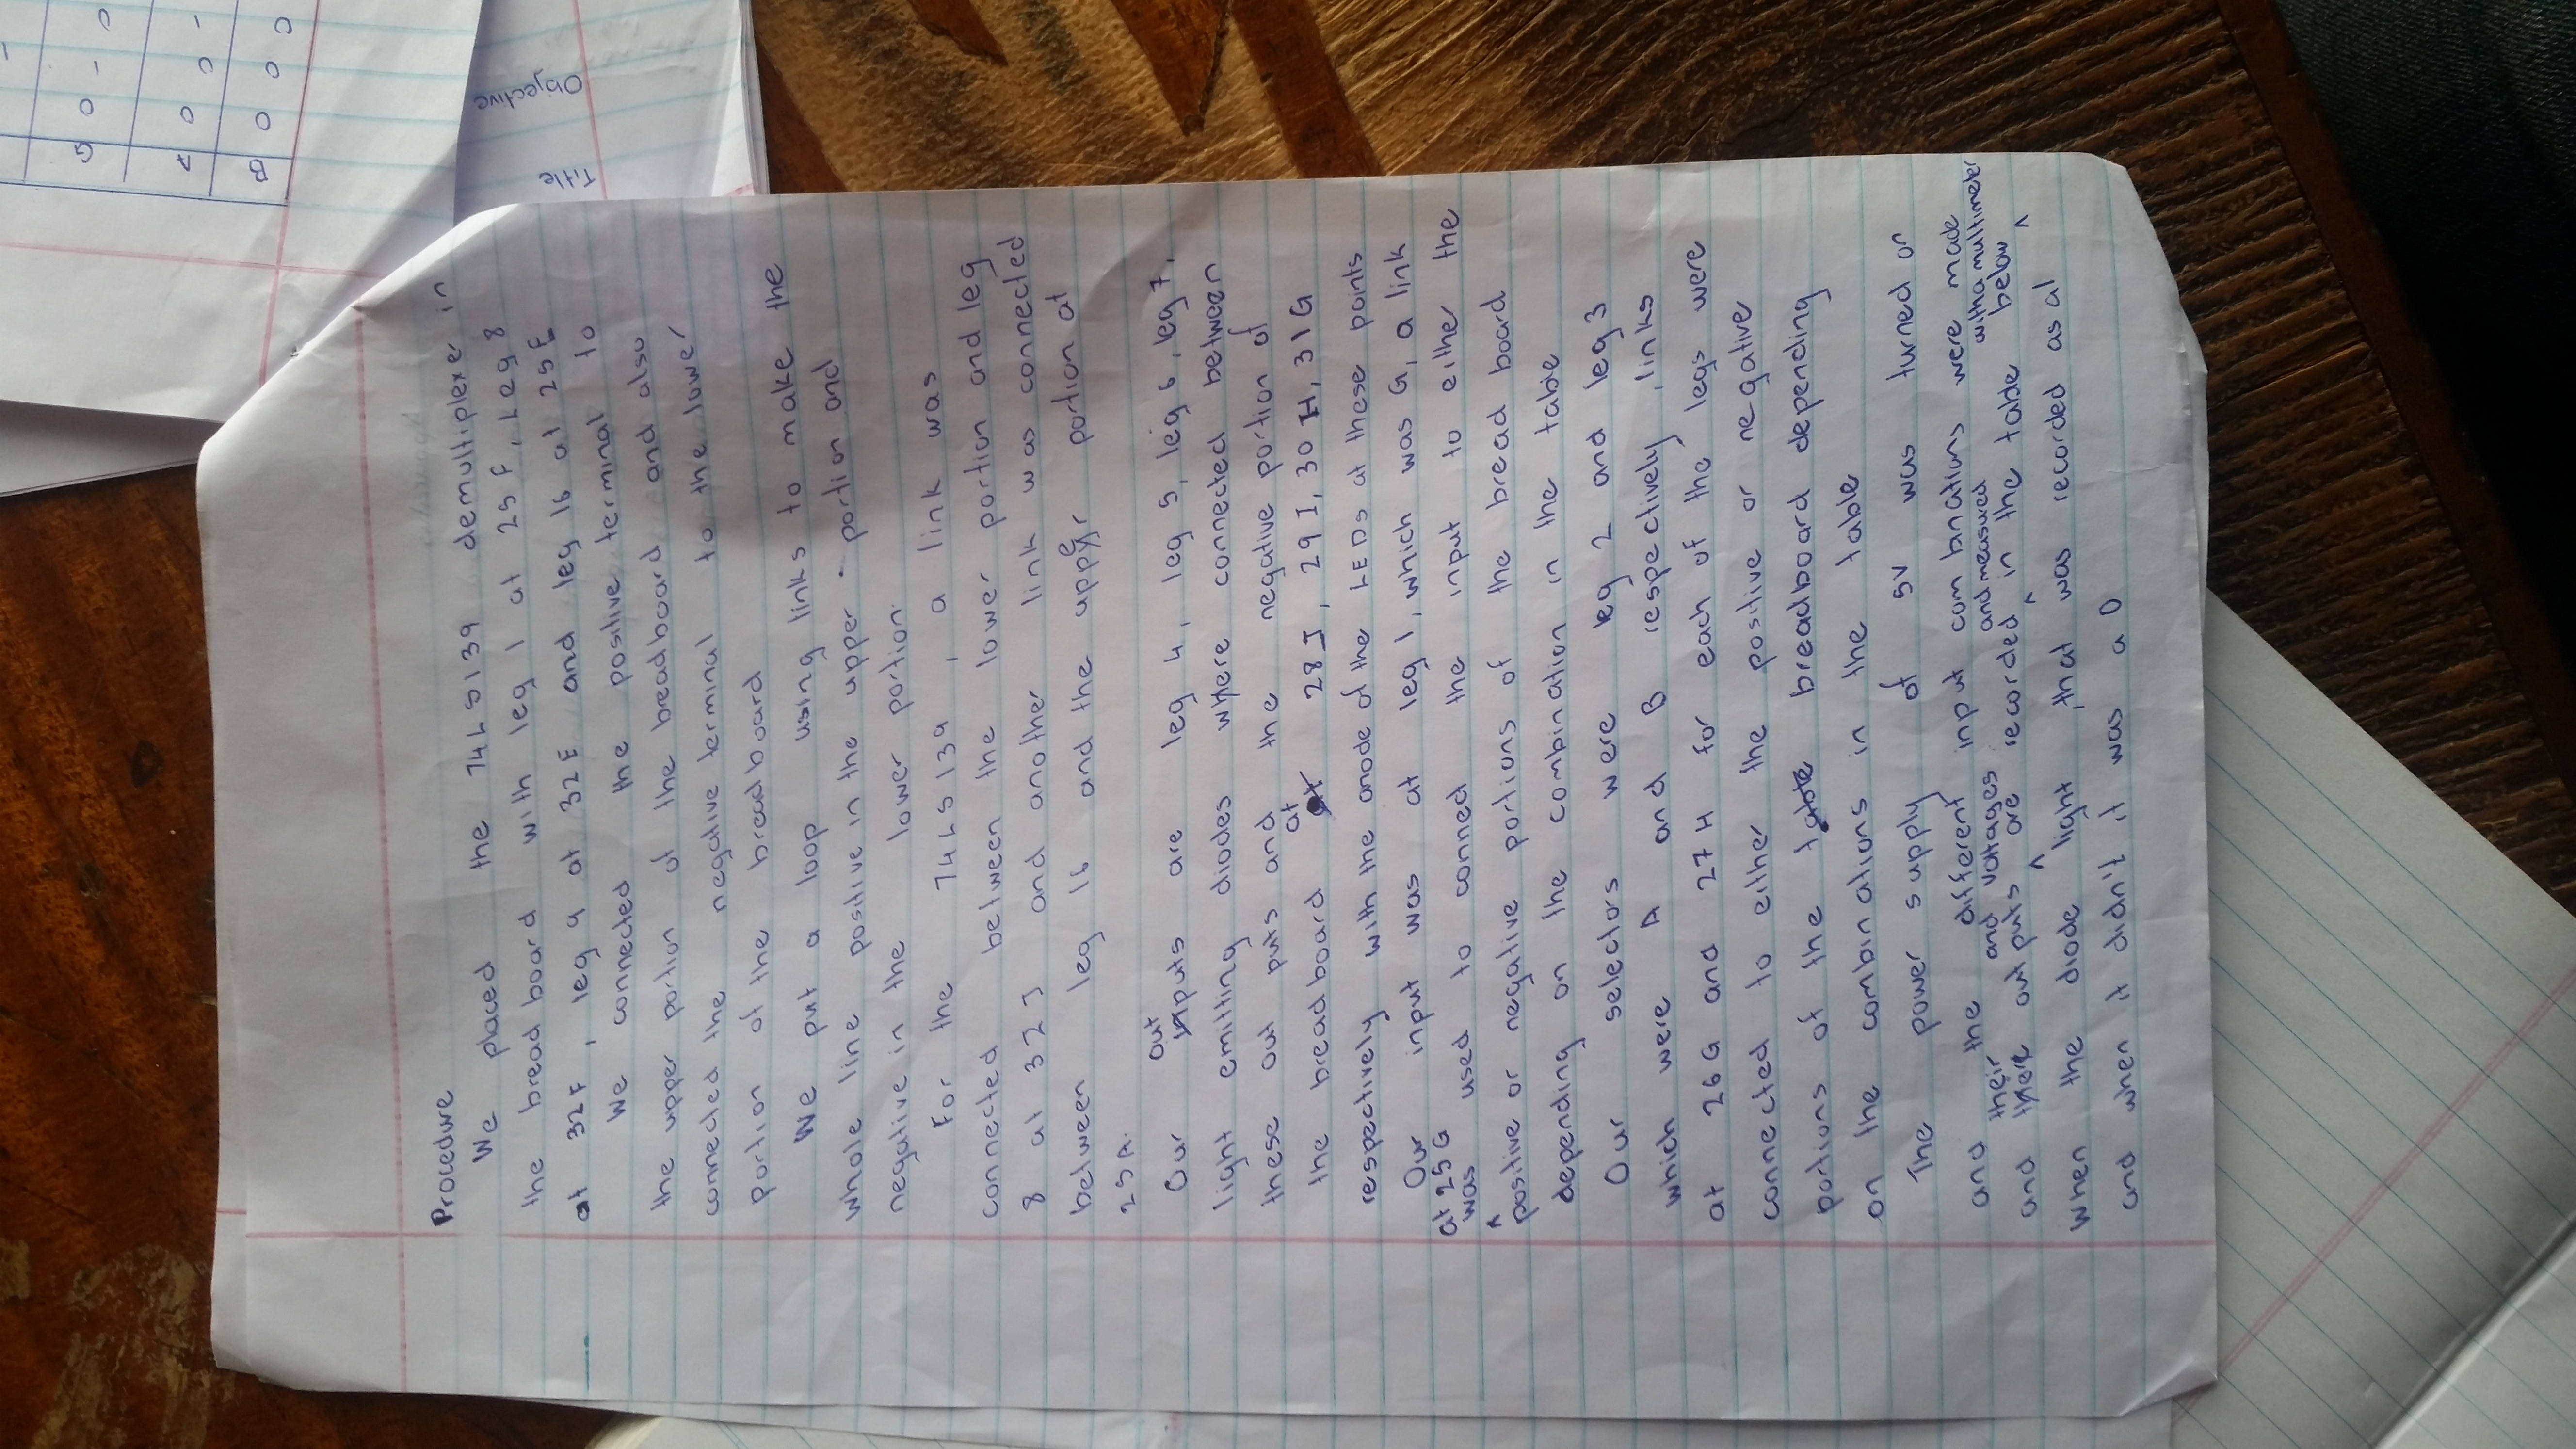 Procedure
We placed the 74LS139 demultiplexer in
the bread board with leg 1 at 25F, Leg 8
at 32F, leg 9 at 32E and leg 16 at 25E
We connected the positive terminal to
the upper portion of the breadboard and also
connected the negative terminal to the lower
portion of the breadboard
We put a loop using links to make the
whole line positive in the upper portion and
negative in the lower portion.
For the 74LS139, a link was
connected between the lower portion and leg
8 at 32J and another link was connected
between leg 16 and the upper portion at
25A.
Our outputs are leg 4, leg 5, leg 6, leg 7,
light emitting diodes where connected between
these out puts and the negative portion of
the breadboard at 28J, 29I, 30H, 31G
respectively with the anode of the LEDs at these points
Our input was at leg 1, which was G, a link
at 25G
was used to connect the input to either the
positive or negative portions of the bread board
depending on the combination in the table
Our selectors were leg 2 and leg 3
which were A and B respectively, links
at 26G and 27H for each of the legs were
connected to either the positive or negative
portions of the table breadboard depending
on the combinations in the table
The power supply of 5V was turned on
and the different input combinations were made
their and voltages and measured with a multimeter
and there outputs are recorded in the table below
when the diode light, that was recorded as a 1
and when it didn't it was a 0
B A G
0 0 0
0 0 1
0 1 0
Title
Objective